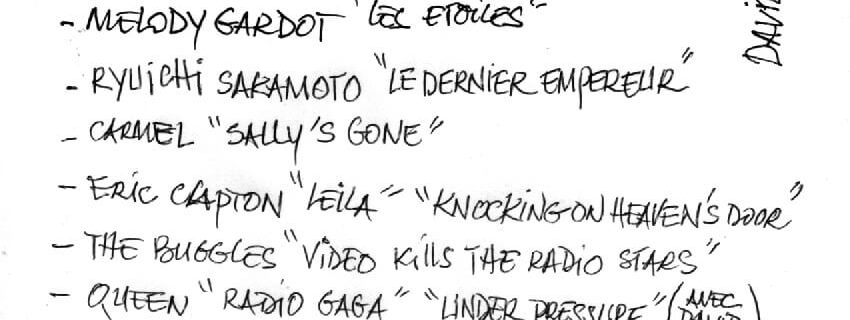 - MELODY GARDOT "LES ETOILES"
- RYUICHI SAKAMOTO "LE DERNIER EMPEREUR"
- CARMEL "SALLY'S GONE"
- ERIC CLAPTON "LEILA" "KNOCKING ON HEAVEN'S DOOR"
- THE BUGGLES "VIDEO KILLS THE RADIO STARS"
- QUEEN "RADIO GAGA" "UNDER PRESSURE" (AVEC
DAVID